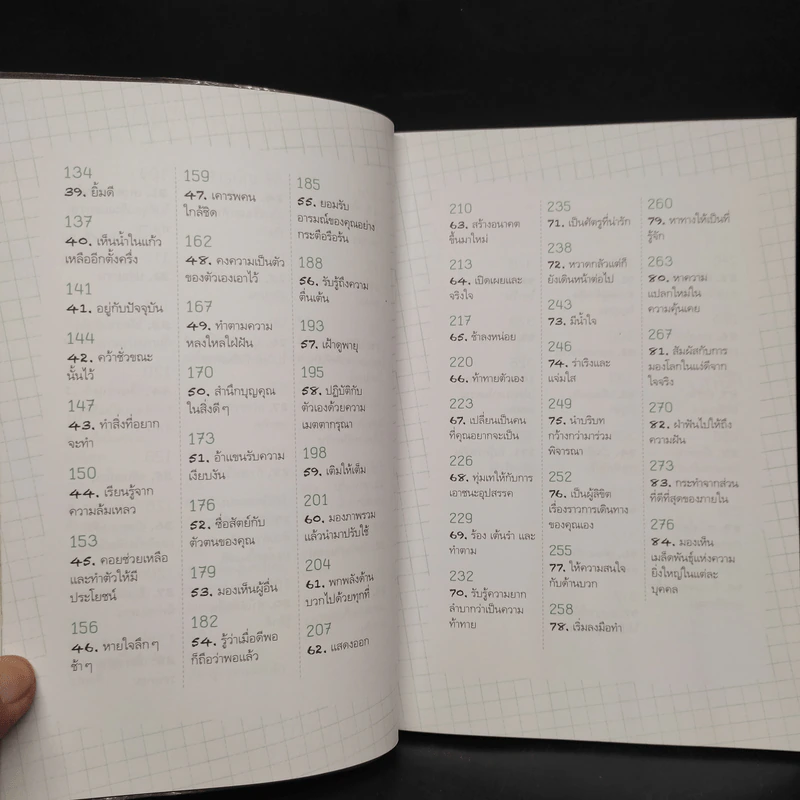 134
39. ยิ้มดี
137
40. เห็นน้ำในแก้ว
เหลืออีกตั้งครึ่ง
141
41. อยู่กับปัจจุบัน
144
42. คว้าชั่วขณะ
นั้นไว้
147
43. ทำสิ่งที่อยาก
จะทำ
150
44. เรียนรู้จาก
ความล้มเหลว
153
45. คอยช่วยเหลือ
และทำตัวให้มี
ประโยชน์
156
46. หายใจลึก ๆ
ช้า ๆ
159
47. เคารพคน
ใกล้ชิด
162
48. คงความเป็นตัว
ของตัวเองเอาไว้
167
49. ทำตามความ
หลงใหลใฝ่ฝัน
170
50. สำนึกบุญคุณ
ในสิ่งดี ๆ
173
51. อ้าแขนรับความ
เงียบงัน
176
52. ซื่อสัตย์กับ
ตัวตนของคุณ
179
53. มองเห็นผู้อื่น
182
54. รู้ว่าเมื่อดีพอ
ก็ถือว่าพอแล้ว
185
55. ยอมรับ
อารมณ์ของคุณอย่าง
กระตือรือร้น
188
56. รับรู้ถึงความ
ตื่นเต้น
193
57. เฝ้าดูพายุ
195
58. ปฏิบัติกับ
ตัวเองด้วยความ
เมตตากรุณา
198
59. เติมให้เต็ม
201
60. มองภาพรวม
แล้วนำมาปรับใช้
204
61. พกพลังด้าน
บวกไปด้วยทุกที่
207
62. แสดงออก
210
63. สร้างอนาคต
ขึ้นมาใหม่
213
64. เปิดเผยและ
จริงใจ
217
65. ช้าลงหน่อย
220
66. ท้าทายตัวเอง
223
67. เปลี่ยนเป็นคน
ที่คุณอยากจะเป็น
226
68. ทุ่มเทให้กับการ
เอาชนะอุปสรรค
229
69. ร้อง เต้นรำ และ
ทำตาม
232
70. รับรู้ความยาก
ลำบากว่าเป็นความ
ท้าทาย
235
71. เป็นศัตรูที่น่ารัก
238
72. หวาดกลัวแต่ก็
ยังเดินหน้าต่อไป
243
73. มีน้ำใจ
246
74. ร่าเริงและ
แจ่มใส
249
75. นำบริบท
กว้างกว่ามาร่วม
พิจารณา
252
76. เป็นผู้ลิขิต
เรื่องราวการเดินทาง
ของคุณเอง
255
77. ให้ความสนใจ
กับด้านบวก
258
78. เริ่มลงมือทำ
260
79. หาทางให้เป็นที่
รู้จัก
263
80. หาความ
แปลกใหม่ใน
ความคุ้นเคย
267
81. สัมผัสกับการ
มองโลกในแง่ดีจาก
ใจจริง
270
82. ฝ่าฟันไปให้ถึง
ความฝัน
273
83. กระทำจากส่วน
ที่ดีที่สุดของภายใน
276
84. มองเห็น
เมล็ดพันธุ์แห่งความ
ยิ่งใหญ่ในแต่ละ
บุคคล